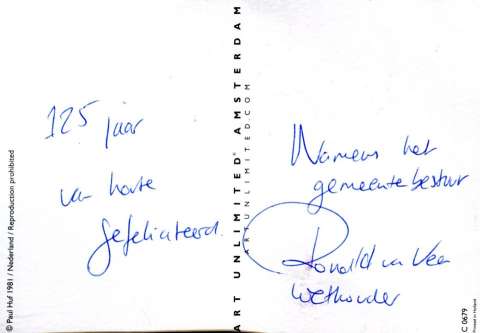 125 jaar
van harte
gefeliciteerd.
Namens het
gemeentebestuur
Ronald van Veen
wethouder
ART UNLIMITED® AMSTERDAM
ARTUNLIMITED.COM
© Paul Huf 1981 / Nederland / Reproduction prohibited
C 0679
Printed in Holland